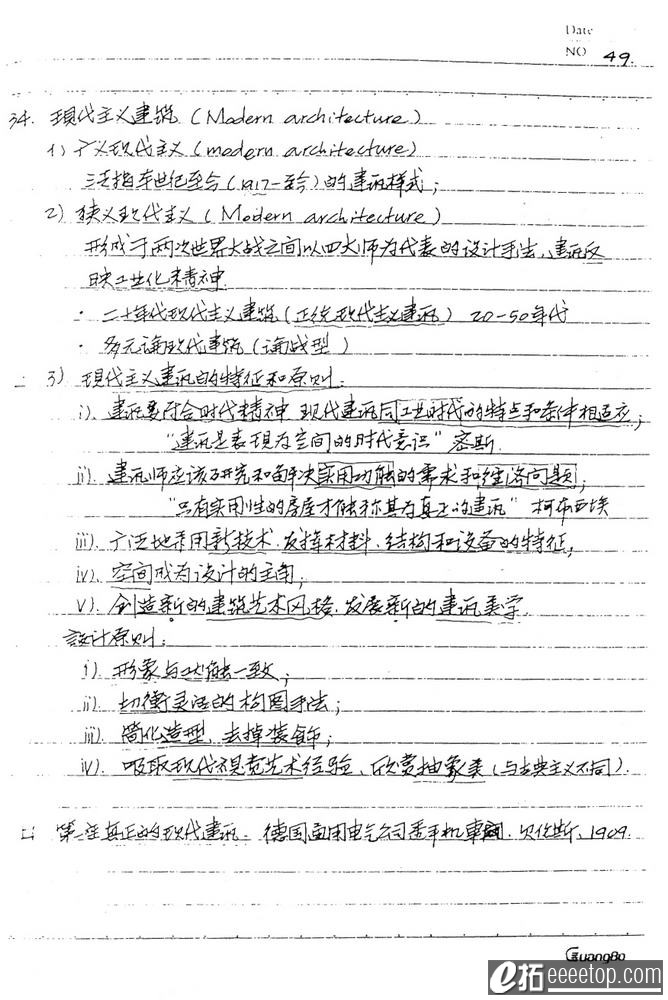 Date
NO 49.
34. 现代主义建筑 (Modern architecture)
1) 广义现代主义 (modern architecture)
泛指本世纪至今 (1917-至今) 的建筑样式;
2) 狭义现代主义 (Modern architecture)
形成于两次世界大战之间以四大师为代表的设计手法,建筑反
映工业化精神.
· 二十年代现代主义建筑 (正统现代主义建筑) 20-50年代
· 多元论现代建筑 (论战型)
3) 现代主义建筑的特征和原则:
i). 建筑要符合时代精神 现代建筑同工业时代的特点和条件相适应;
"建筑是表现为空间的时代意识" 密斯.
ii). 建筑师应该研究和解决实用功能的需求和经济问题;
"只有实用性的房屋才能称其为真正的建筑" 柯布西埃
iii). 广泛地采用新技术.发挥材料.结构和设备的特征,
iv). 空间成为设计的主角;
v). 创造新的建筑艺术风格.发展新的建筑美学.
设计原则:
i) 形象与功能一致;
ii). 均衡灵活的构图手法;
iii). 简化造型,去掉装饰;
iv). 吸取现代视觉艺术经验、欣赏抽象美 (与古典主义不同).
第一座真正的现代建筑 - 德国通用电气公司透平机車间.贝伦斯、1909.
GuangBo
e拓 eeeetop.com